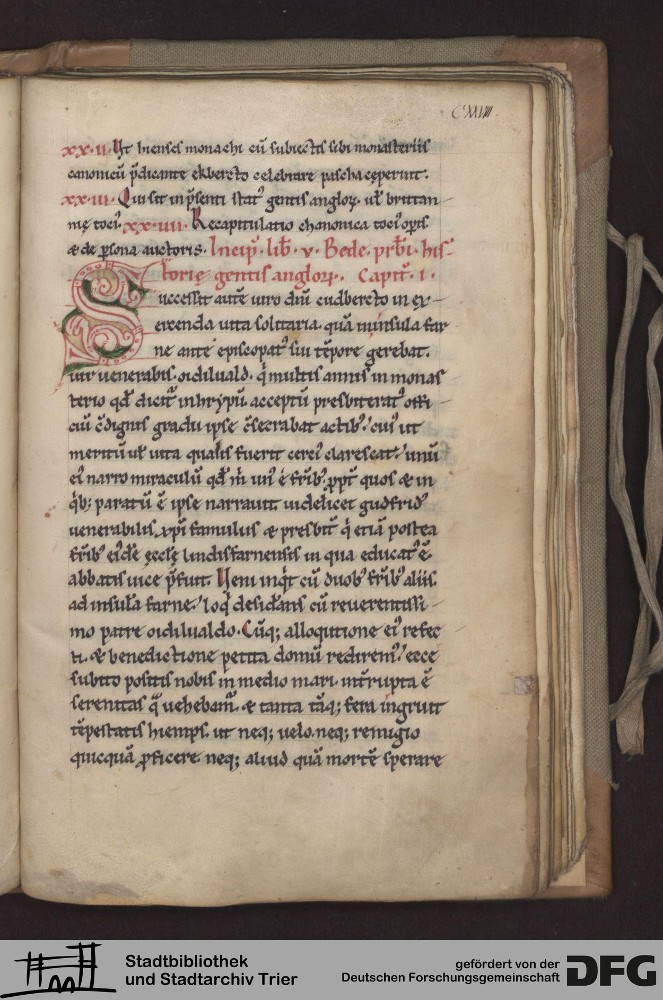 CXXVIII
xx·ii· Ut hienses monachi cū subiectis sibi monasteriis
canonicū p̄dicante ekbercto celebrare pascha cęperint.
xx·iii· Qui sit in p̄senti stat᷒ gentis angloꝝ. ul̄ brittan-
nię toci᷒. xx·iiii· Recapitulatio chanonica toci᷒ opis.
& de ꝑsona auctoris. Incip̄. lib̄. v. Bede. prb̄i. his-
torię gentis angloꝝ. Capit̄. i.
Successit autē uiro dn̄i cudbercto in ex-
ercenda uita solitaria. quā in insula far-
ne ante episcopat᷒ sui tēpore gerebat.
uir uenerabilis. oidiluald. q̇ multis annis in monas-
terio qd̄ dicit᷑ inhrypū acceptū presbiterat᷒ offi-
ciū c̄dignis gradu ipse c̄secrabat actib᷒. cui᷒ ut
meritū ul̄ uita qualis fuerit cerci᷒ clarescat. unū
ei᷒ narro miraculū qd̄ m̄ un᷒ ē frīb᷒. ꝓpt̄ quos & in
q̇b; paratū ē ipse narrauit uidelicet gudfrid᷒
uenerabilis. xp̄i famulus & presbit̄ q̇ etiā postea
frīb᷒ ei᷒dē ęccl̄ę lindisfarnensis in qua educat᷒ ē.
abbatis uice p̄fuit. Veni inq̇t cū duob᷒ frīb᷒ aliis.
ad insulā farne. loq̇ desid̄ans cū reuerentissi-
mo patre oidilualdo. Cūq; alloqutione ei᷒ refec-
ti. & benedictione petita domū redirem᷒. ecce
subito positis nobis in medio mari. int̄rupta ē
serenitas q̄ uehebam᷑. & tanta tāq; fera ingruit
tēpestatis hiemps. ut neq; uelo. neq; remigio
quicquā ꝓficere. neq; aliud quā mortē sperare
Stadtbibliothek
und Stadtarchiv Trier
gefördert von der
Deutschen Forschungsgemeinschaft
DFG